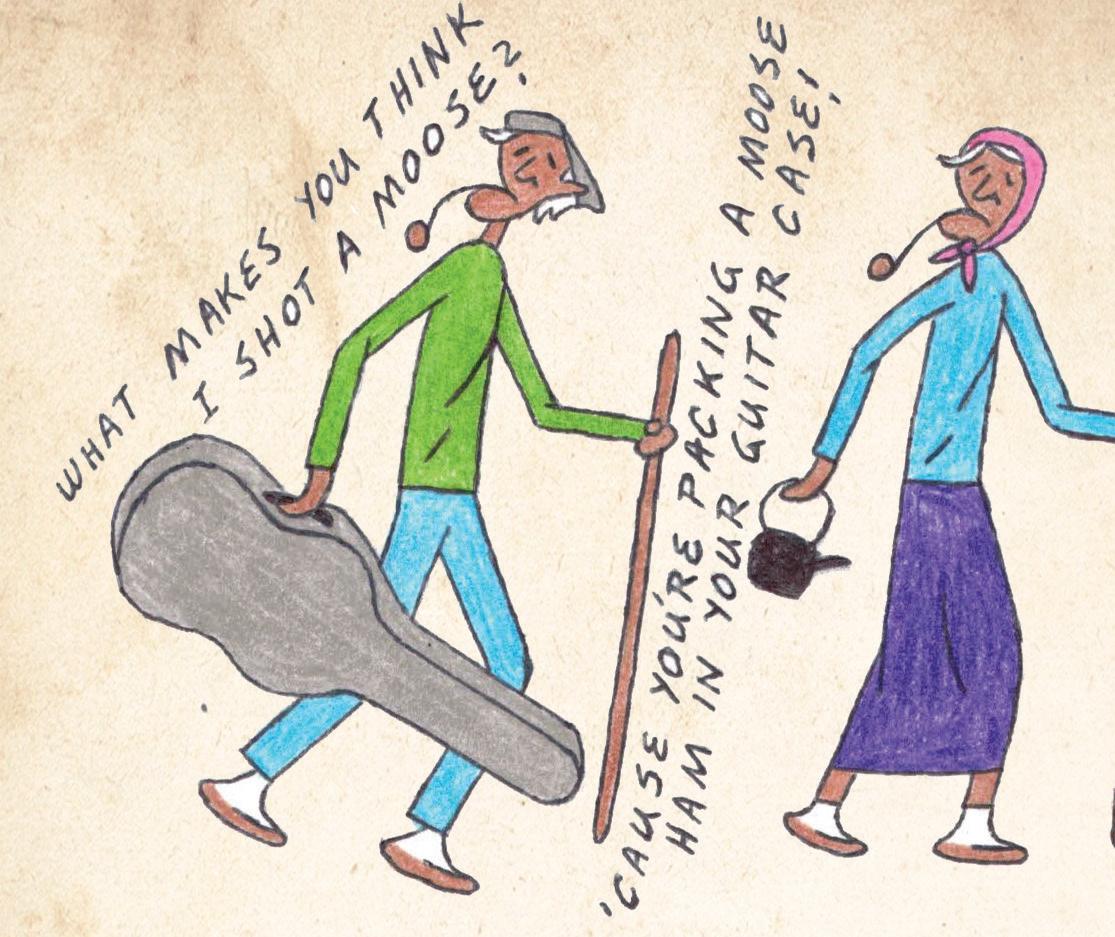 WHAT MAKES YOU THINK
I SHOT A MOOSE?
'CAUSE YOU'RE PACKING A MOOSE
HAM IN YOUR GUITAR CASE!